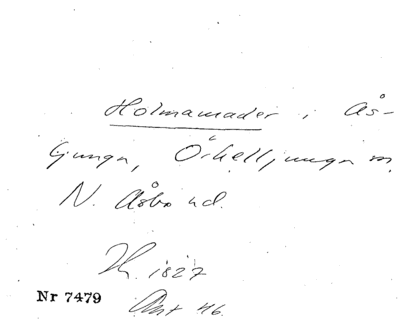 Holmamader i Ås-
ljunga, Örkelljunga sn.
N. Åsbo hd.
1827
Nr 7479 Akt 46.